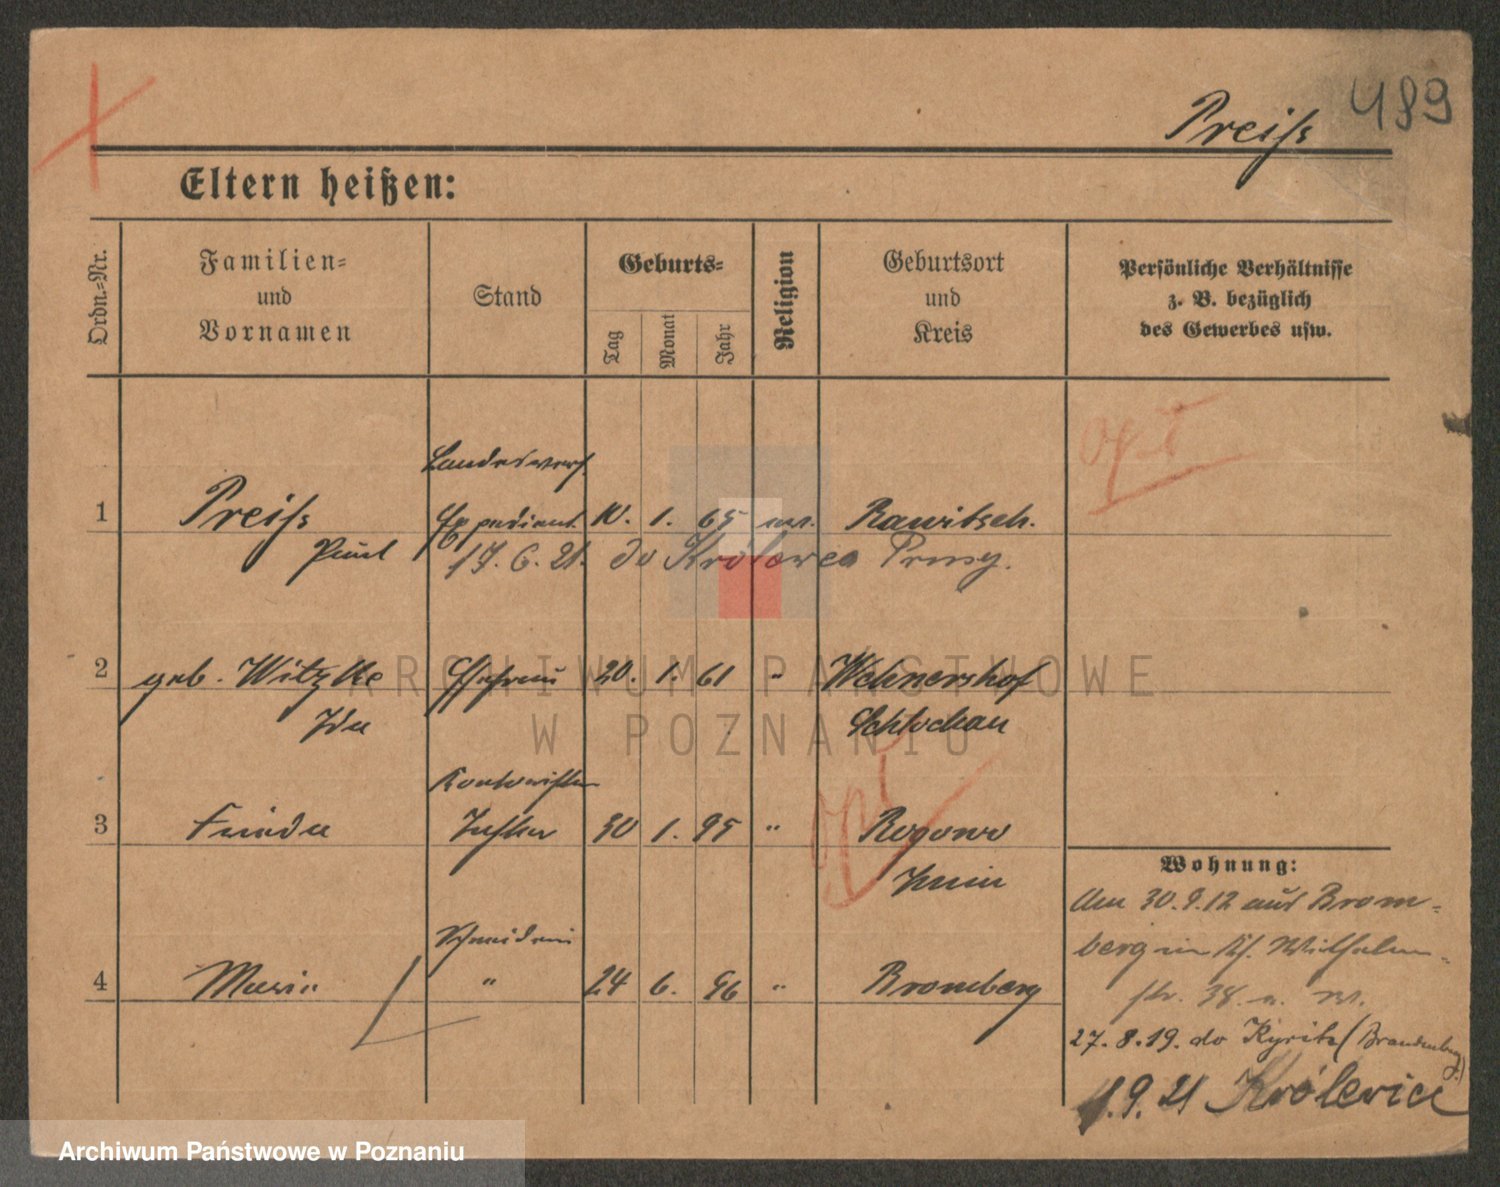 Preiß 489
Eltern heißen:
Ordn.-Nr.
Familien-
und
Vornamen
Stand
Geburts-
Tag
Monat
Jahr
Religion
Geburtsort
und
Kreis
Persönliche Verhältnisse
z. B. bezüglich
des Gewerbes usw.
Landesvers.
1 Preiß Expedient 10. 1. 65 ev. Rawitsch.
Paul 17. 6. 21. do Królewca Prusy.
2 geb. Witzke Ehefrau 20. 1. 61 " Wehnershof
Ida Schlochau
Kontoristin
3 Frieda Tochter 30 1. 95 " Rogowo
Znin
4 Maria " 24 6. 96 " Bromberg
opt
opt
Wohnung:
Am 30.9.12 aus Brom-
berg in Wilhelm-
str. 38
27.8.19. do Kyritz (Brandenburg)
1.9.21 Królewiec
ARCHIWUM PAŃSTWOWE
W POZNANIU
Archiwum Państwowe w Poznaniu